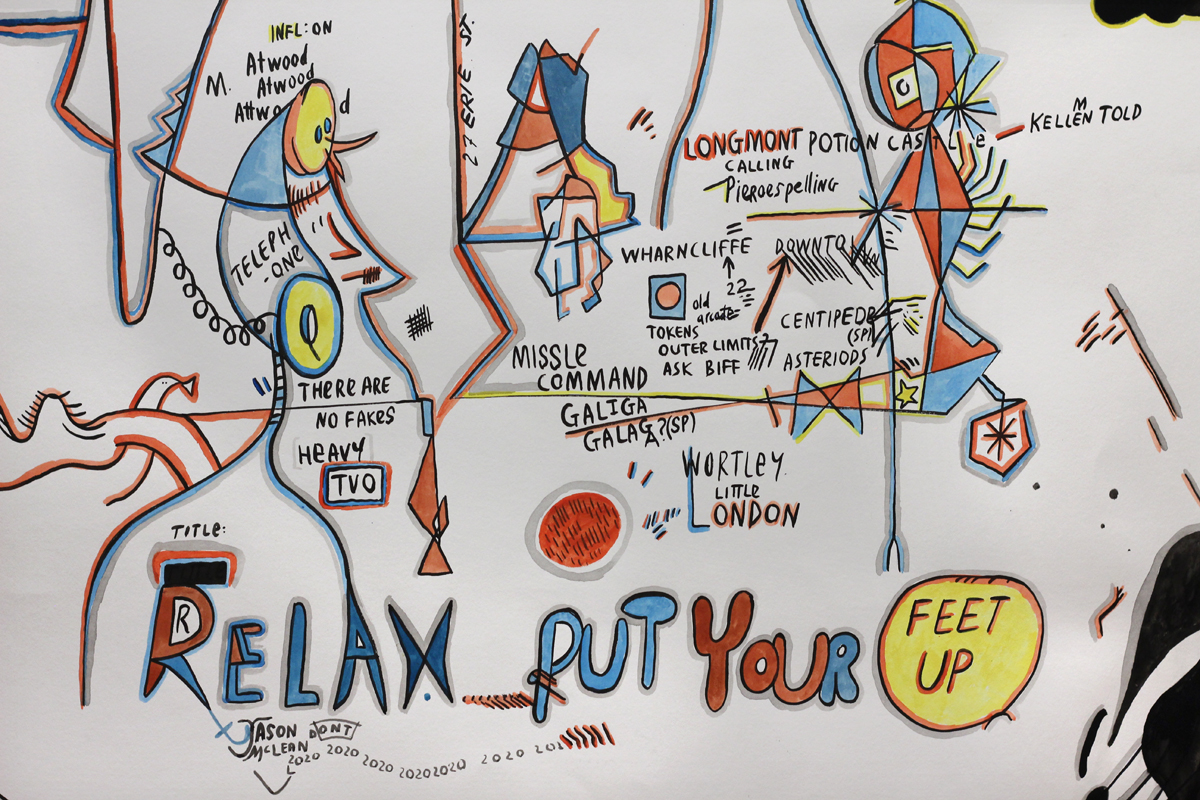 INFL:ON
M. Atwood
Atwood
27 ERIE ST.
TELEPH
-ONE
THERE ARE
NO FAKES
HEAVY
TVO
LONGMONT POTION CASTLE
M
KELLEN TOLD
CALLING
Pieroespelling
WHARNCLIFFE
22
old
arcade
TOKENS
OUTER LIMITS?
ASK BIFF
CENTIPEDE
(SP)
ASTERIODS
MISSLE
COMMAND
GALIGA
GALAGA?(SP)
WORTLEY.
LITTLE
LONDON
TITLE:
R
RELAX PUT YOUR FEET UP
JASON DONT
McLEAN
2020 2020 2020 2020 2020 2020 2020